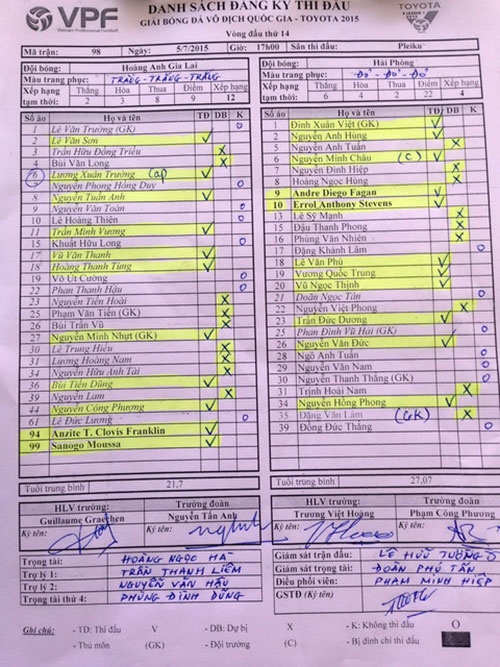 VPF
DANH SÁCH ĐĂNG KÝ THI ĐẤU
GIẢI BÓNG ĐÁ VÔ ĐỊCH QUỐC GIA - TOYOTA 2015
TOYOTA
Vòng đấu thứ 14
Mã trận: 98 Ngày: 5/7/2015 Giờ: 17h00 Sân thi đấu: Pleiku
Đội bóng: Hoàng Anh Gia Lai
Màu trang phục: TRẮNG - TRẮNG - TRẮNG
Xếp hạng tạm thời: Thắng Hòa Thua Điểm Xếp hạng
2 3 8 9 12
Số áo Họ và tên TĐ DB K
1 Lê Văn Trường (GK) O
2 Lê Văn Sơn V
3 Trần Hữu Đông Triều X
4 Bùi Văn Long X
6 Lương Xuân Trường Cap V
7 Nguyễn Phong Hồng Duy O
8 Nguyễn Tuấn Anh V
9 Nguyễn Văn Toàn O
10 Lê Hoàng Thiên O
11 Trần Minh Vương V
15 Khuất Hữu Long O
17 Vũ Văn Thanh V
18 Hoàng Thanh Tùng V
19 Võ Út Cường O
22 Phan Thanh Hậu O
23 Nguyễn Tiến Hoài X
25 Phạm Văn Tiến (GK) X
26 Bùi Trần Vũ X
27 Nguyễn Minh Nhựt (GK) V
30 Lê Trung Hiếu X
31 Lương Hoàng Nam X
34 Nguyễn Hữu Anh Tài X
36 Bùi Tiến Dũng V
39 Nguyễn Lam X
44 Nguyễn Công Phượng V
61 Lê Đức Lương O
94 Anzite T. Clovis Franklin V
99 Sanogo Moussa V
Tuổi trung bình 21,7
Đội bóng: Hải Phòng
Màu trang phục: ĐỎ - ĐỎ - ĐỎ
Xếp hạng tạm thời: Thắng Hòa Thua Điểm Xếp hạng
6 4 2 22 4
Số áo Họ và tên TĐ DB K
1 Đinh Xuân Việt (GK) V
2 Nguyễn Anh Hùng V
5 Nguyễn Anh Tuấn X
6 Nguyễn Minh Châu (C) V
7 Nguyễn Đình Hiệp X
8 Hoàng Ngọc Hùng X
9 Andre Diego Fagan V
10 Errol Anthony Stevens V
13 Lê Sỹ Mạnh X
15 Đậu Thanh Phong X
16 Phùng Văn Nhiên X
17 Đặng Khánh Lâm O
18 Lê Văn Phú V
19 Vương Quốc Trung V
20 Vũ Ngọc Thịnh V
21 Doãn Ngọc Tân O
22 Nguyễn Việt Phong X
23 Trần Đức Dương V
25 Phan Đình Vũ Hải (GK) O
26 Nguyễn Văn Đức V
28 Ngô Anh Tuấn O
29 Nguyễn Văn Nam O
30 Nguyễn Thanh Thắng (GK) O
31 Trịnh Hoài Nam X
34 Nguyễn Hồng Phong V
35 Đặng Văn Lâm (GK) X
39 Đồng Đức Thắng O
27,07
HLV trưởng: Guillaume Graechen
Trưởng đoàn Nguyễn Tấn Anh
HLV trưởng: Trương Việt Hoàng
Trưởng đoàn Phạm Công Phương
Ký tên: Ký tên: Ký tên: Ký tên:
Trọng tài: HOÀNG NGỌC HÀ
Trợ lý 1: TRẦN THANH LIÊM
Trợ lý 2: NGUYỄN VĂN HẬU
Trọng tài thứ 4: PHÙNG ĐÌNH DŨNG
Giám sát trận đấu: LÊ HỮU TƯỜNG
Giám sát trọng tài: ĐOÀN PHÚ TẤN
Điều phối viên: PHẠM MINH HIỆP
GSTĐ (Ký tên)
Ghi chú: - TĐ: Thi đấu V - DB: Dự bị X - K: Không thi đấu O
- Thủ môn (GK) - Đội trưởng (C) - Bị đình chỉ thi đấu